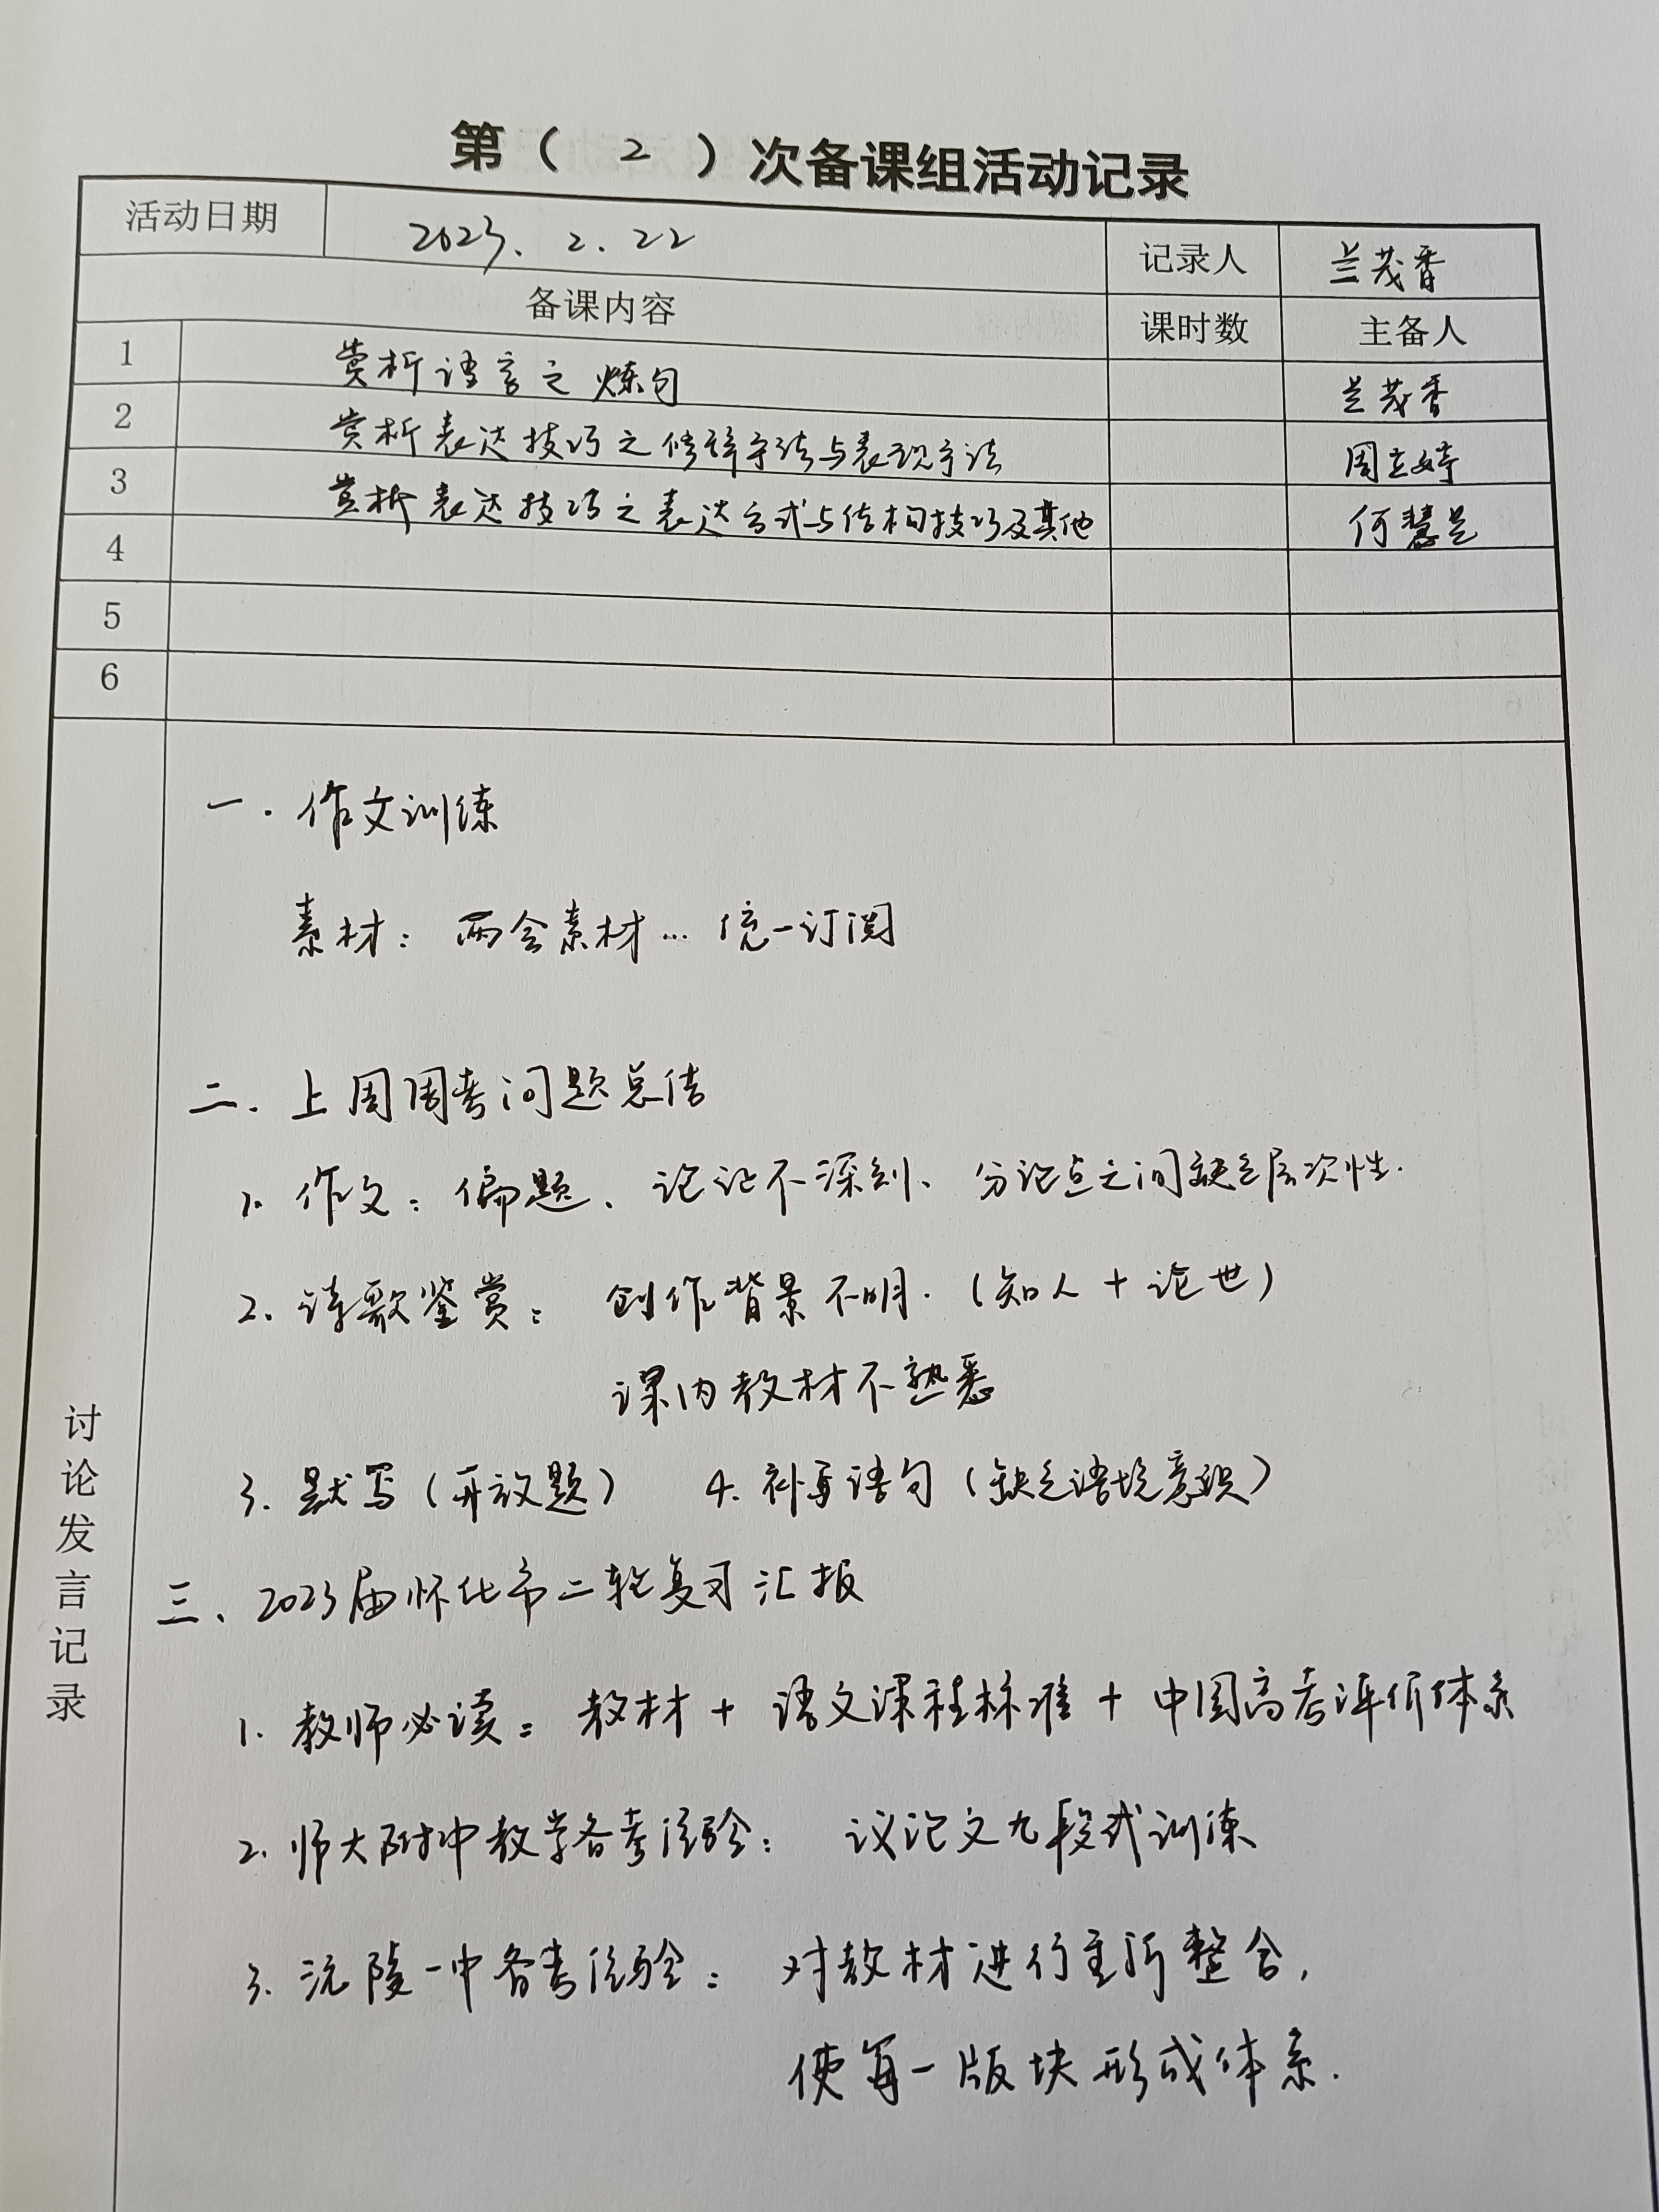 第（ 2 ）次备课组活动记录
活动日期 2023. 2. 22 记录人 兰茂香
备课内容 课时数 主备人
1 赏析语言之炼句 兰茂香
2 赏析表达技巧之修辞手法与表现手法 周立婷
3 赏析表达技巧之表达方式与结构技巧及其他 何慧
4
5
6
讨论发言记录
一. 作文训练
素材：两会素材… 统一订阅
二. 上周周考问题总结
1. 作文：偏题、论证不深刻、分论点之间缺乏层次性.
2. 诗歌鉴赏： 创作背景不明.（知人 + 论世）
课内教材不熟悉
3. 默写（开放题） 4. 补写语句（缺乏语境意识）
三、2023届怀化市二轮复习汇报
1. 教师必读：教材 + 语文课程标准 + 中国高考评价体系
2. 师大附中教学备考经验： 议论文九段式训练
3. 沅陵一中备考经验： 对教材进行重新整合,
使每一版块形成体系.